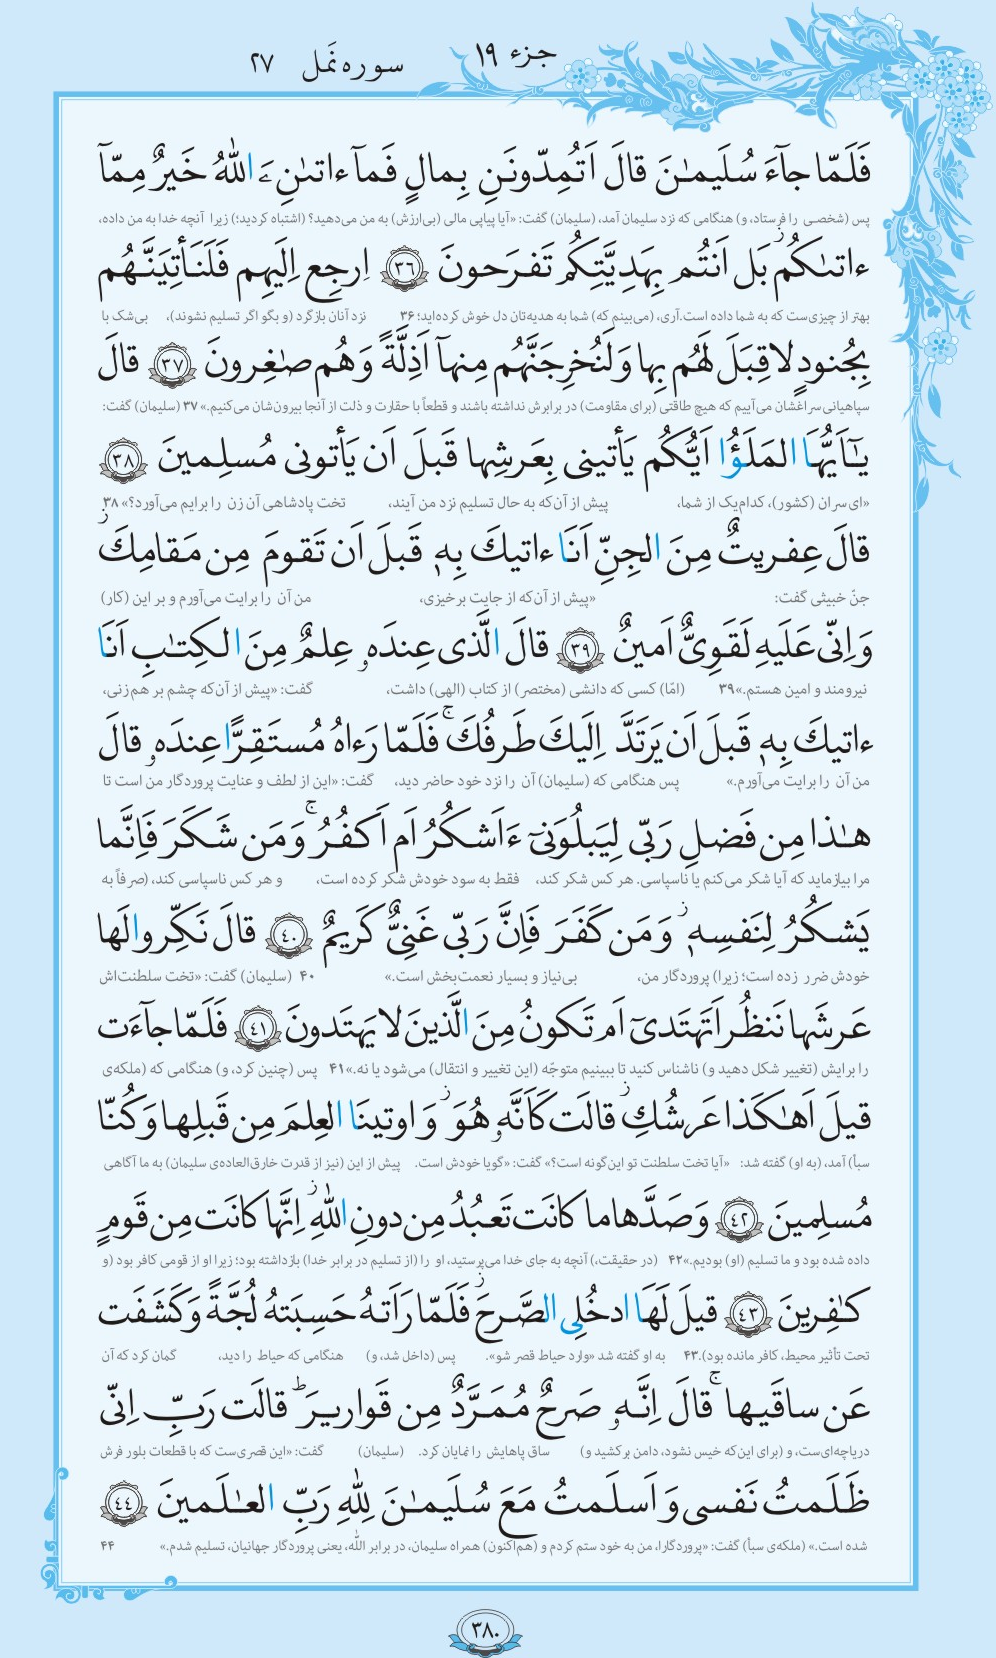 جزء ۱۹
سوره نَمل ۲۷
فَلَمّا جآءَ سُلَیمـٰنَ قالَ اَتُمِدّونَنِ بِمالٍ فَمآ ءاتىٰنِۦَ اللهُ خَیرٌ مِمّآ
پس (شخصـی را فرستاد، و) هنگامی که نزد سلیمان آمد، (سلیمان) گفت: «آیا پیاپی مالی (بی‌ارزش) به من می‌دهید؟ (اشتباه کردید؛) زیرا آنچه خدا به من داده،
ءاتىٰکُم ز بَل اَنتُم بِهَدِیَّتِکُم تَفرَحونَ ﴿٣٦﴾ اِرجِع اِلَیهِم فَلَنَأتِیَنَّهُم
بهتر از چیزی‌ست که به شما داده است.آری، (می‌بینم که) شما به هدیه‌تان دل خوش کرده‌اید؛ ۳۶ نزد آنان بازگرد (و بگو اگر تسلیم نشوند)، بی‌شک با
بِجُنودٍ لا قِبَلَ لَهُم بِها وَ لَنُخرِجَنَّهُم مِنهآ اَذِلَّةً وَ هُم صـٰغِرونَ ﴿٣٧﴾ قالَ
سپاهیانی سراغشان می‌آییم که هیچ طاقتی (برای مقاومت) در برابرش نداشته باشند و قطعاً با حقارت و ذلت از آنجا بیرون‌شان می‌کنیم.» ۳۷ (سلیمان) گفت:
یـٰٓاَیُّهَا المَلَؤُا اَیُّکُم یَأتینی بِعَرشِها قَبلَ اَن یَأتونی مُسلِمینَ ﴿٣٨﴾
«ای سران (کشور)، کدام‌یک از شما، پیش از آن‌که به حال تسلیم نزد من آیند، تخت پادشاهی آن زن را برایم می‌آورد؟» ۳۸
قالَ عِفریتٌ مِنَ الجِنِّ اَنَا ءاتیكَ بِهٖ قَبلَ اَن تَقومَ مِن مَقامِكَ ز
جنّ خبیثی گفت: «پیش از آن‌که از جایت برخیزی، من آن را برایت می‌آورم و بر این (کار)
وَ اِنّی عَلَیهِ لَقَوِیٌّ اَمینٌ ﴿٣٩﴾ قالَ الَّذی عِندَهٗ عِلمٌ مِنَ الکِتـٰبِ اَنَا
نیرومند و امین هستم.»۳۹ (امّا) کسی که دانشی (مختصر) از کتاب (الهی) داشت، گفت: «پیش از آن‌که چشم بر هم زنی،
ءاتیكَ بِهٖ قَبلَ اَن یَرتَدَّ اِلَیكَ طَرفُكَ ج فَلَمّا رَءاهُ مُستَقِرًّا عِندَهٗ قالَ
من آن را برایت می‌آورم.» پس هنگامی که (سلیمان) آن را نزد خود حاضر دید، گفت: «این از لطف و عنایت پروردگار من است تا
هـٰذا مِن فَضلِ رَبّی لِیَبلُوَنیٓ ءَاَشکُرُ اَم اَکفُرُ ج وَ مَن شَکَرَ فَاِنَّما
مرا بیازماید که آیا شکر می‌کنم یا ناسپاسی. هر کس شکر کند، فقط به سود خودش شکر کرده است، و هر کس ناسپاسی کند، (صرفاً به
یَشکُرُ لِنَفسِهٖ ز وَ مَن کَفَرَ فَاِنَّ رَبّی غَنِیٌّ کَریمٌ ﴿٤٠﴾ قالَ نَکِّروا لَها
خودش ضرر زده است؛ زیرا) پروردگار من، بی‌نیاز و بسیار نعمت‌بخش است.» ۴۰ (سلیمان) گفت: «تخت سلطنت‌اش
عَرشَها نَنظُر اَتَهتَدیٓ اَم تَکونُ مِنَ الَّذینَ لا یَهتَدونَ ﴿٤١﴾ فَلَمّا جآءَت
را برایش (تغییر شکل دهید و) ناشناس کنید تا ببینیم متوجّه (این تغییر و انتقال) می‌شود یا نه.»۴۱ پس (چنین کرد، و) هنگامی که (ملکه‌ی
قیلَ اَهـٰکَذا عَرشُكِ ز قالَت کَاَنَّهٗ هُوَ ز وَ اوتینَا العِلمَ مِن قَبلِها وَ کُنّا
سبأ) آمد، (به او) گفته شد: «آیا تخت سلطنت تو این‌گونه است؟» گفت: «گویا خودش است. پیش از این (نیز از قدرت خارق‌العاده‌ی سلیمان) به ما آگاهی
مُسلِمینَ ﴿٤٢﴾ وَ صَدَّها ما کانَت تَعبُدُ مِن دونِ اللهِ ز اِنَّها کانَت مِن قَومٍ
داده شده بود و ما تسلیم (او) بودیم.»۴۲ (در حقیقت،) آنچه به جای خدا می‌پرستید، او را (از تسلیم در برابر خدا) بازداشته بود؛ زیرا او از قومی کافر بود (و
کـٰفِرینَ ﴿٤٣﴾ قیلَ لَهَا ادخُلِی الصَّرحَ ز فَلَمّا رَاَتهُ حَسِبَتهُ لُجَّةً وَ کَشَفَت
تحت تأثیر محیط، کافر مانده بود).۴۳ به او گفته شد «وارد حیاط قصر شو». پس (داخل شد، و) هنگامی که حیاط را دید، گمان کرد که آن
عَن ساقَیها ج قالَ اِنَّهٗ صَرحٌ مُمَرَّدٌ مِن قَواریرَ ط قالَت رَبِّ اِنّی
دریاچه‌ای‌ست، و (برای این‌که خیس نشود، دامن برکشید و) ساق پاهایش را نمایان کرد. (سلیمان) گفت: «این قصری‌ست که با قطعات بلور فرش
ظَلَمتُ نَفسی وَ اَسلَمتُ مَعَ سُلَیمـٰنَ لِلّٰهِ رَبِّ العـٰلَمینَ ﴿٤٤﴾
شده است.» (ملکه‌ی سبأ) گفت: «پروردگارا، من به خود ستم کردم و (هم‌اکنون) همراه سلیمان، در برابر الله، یعنی پروردگار جهانیان، تسلیم شدم.» ۴۴
۳۸۰